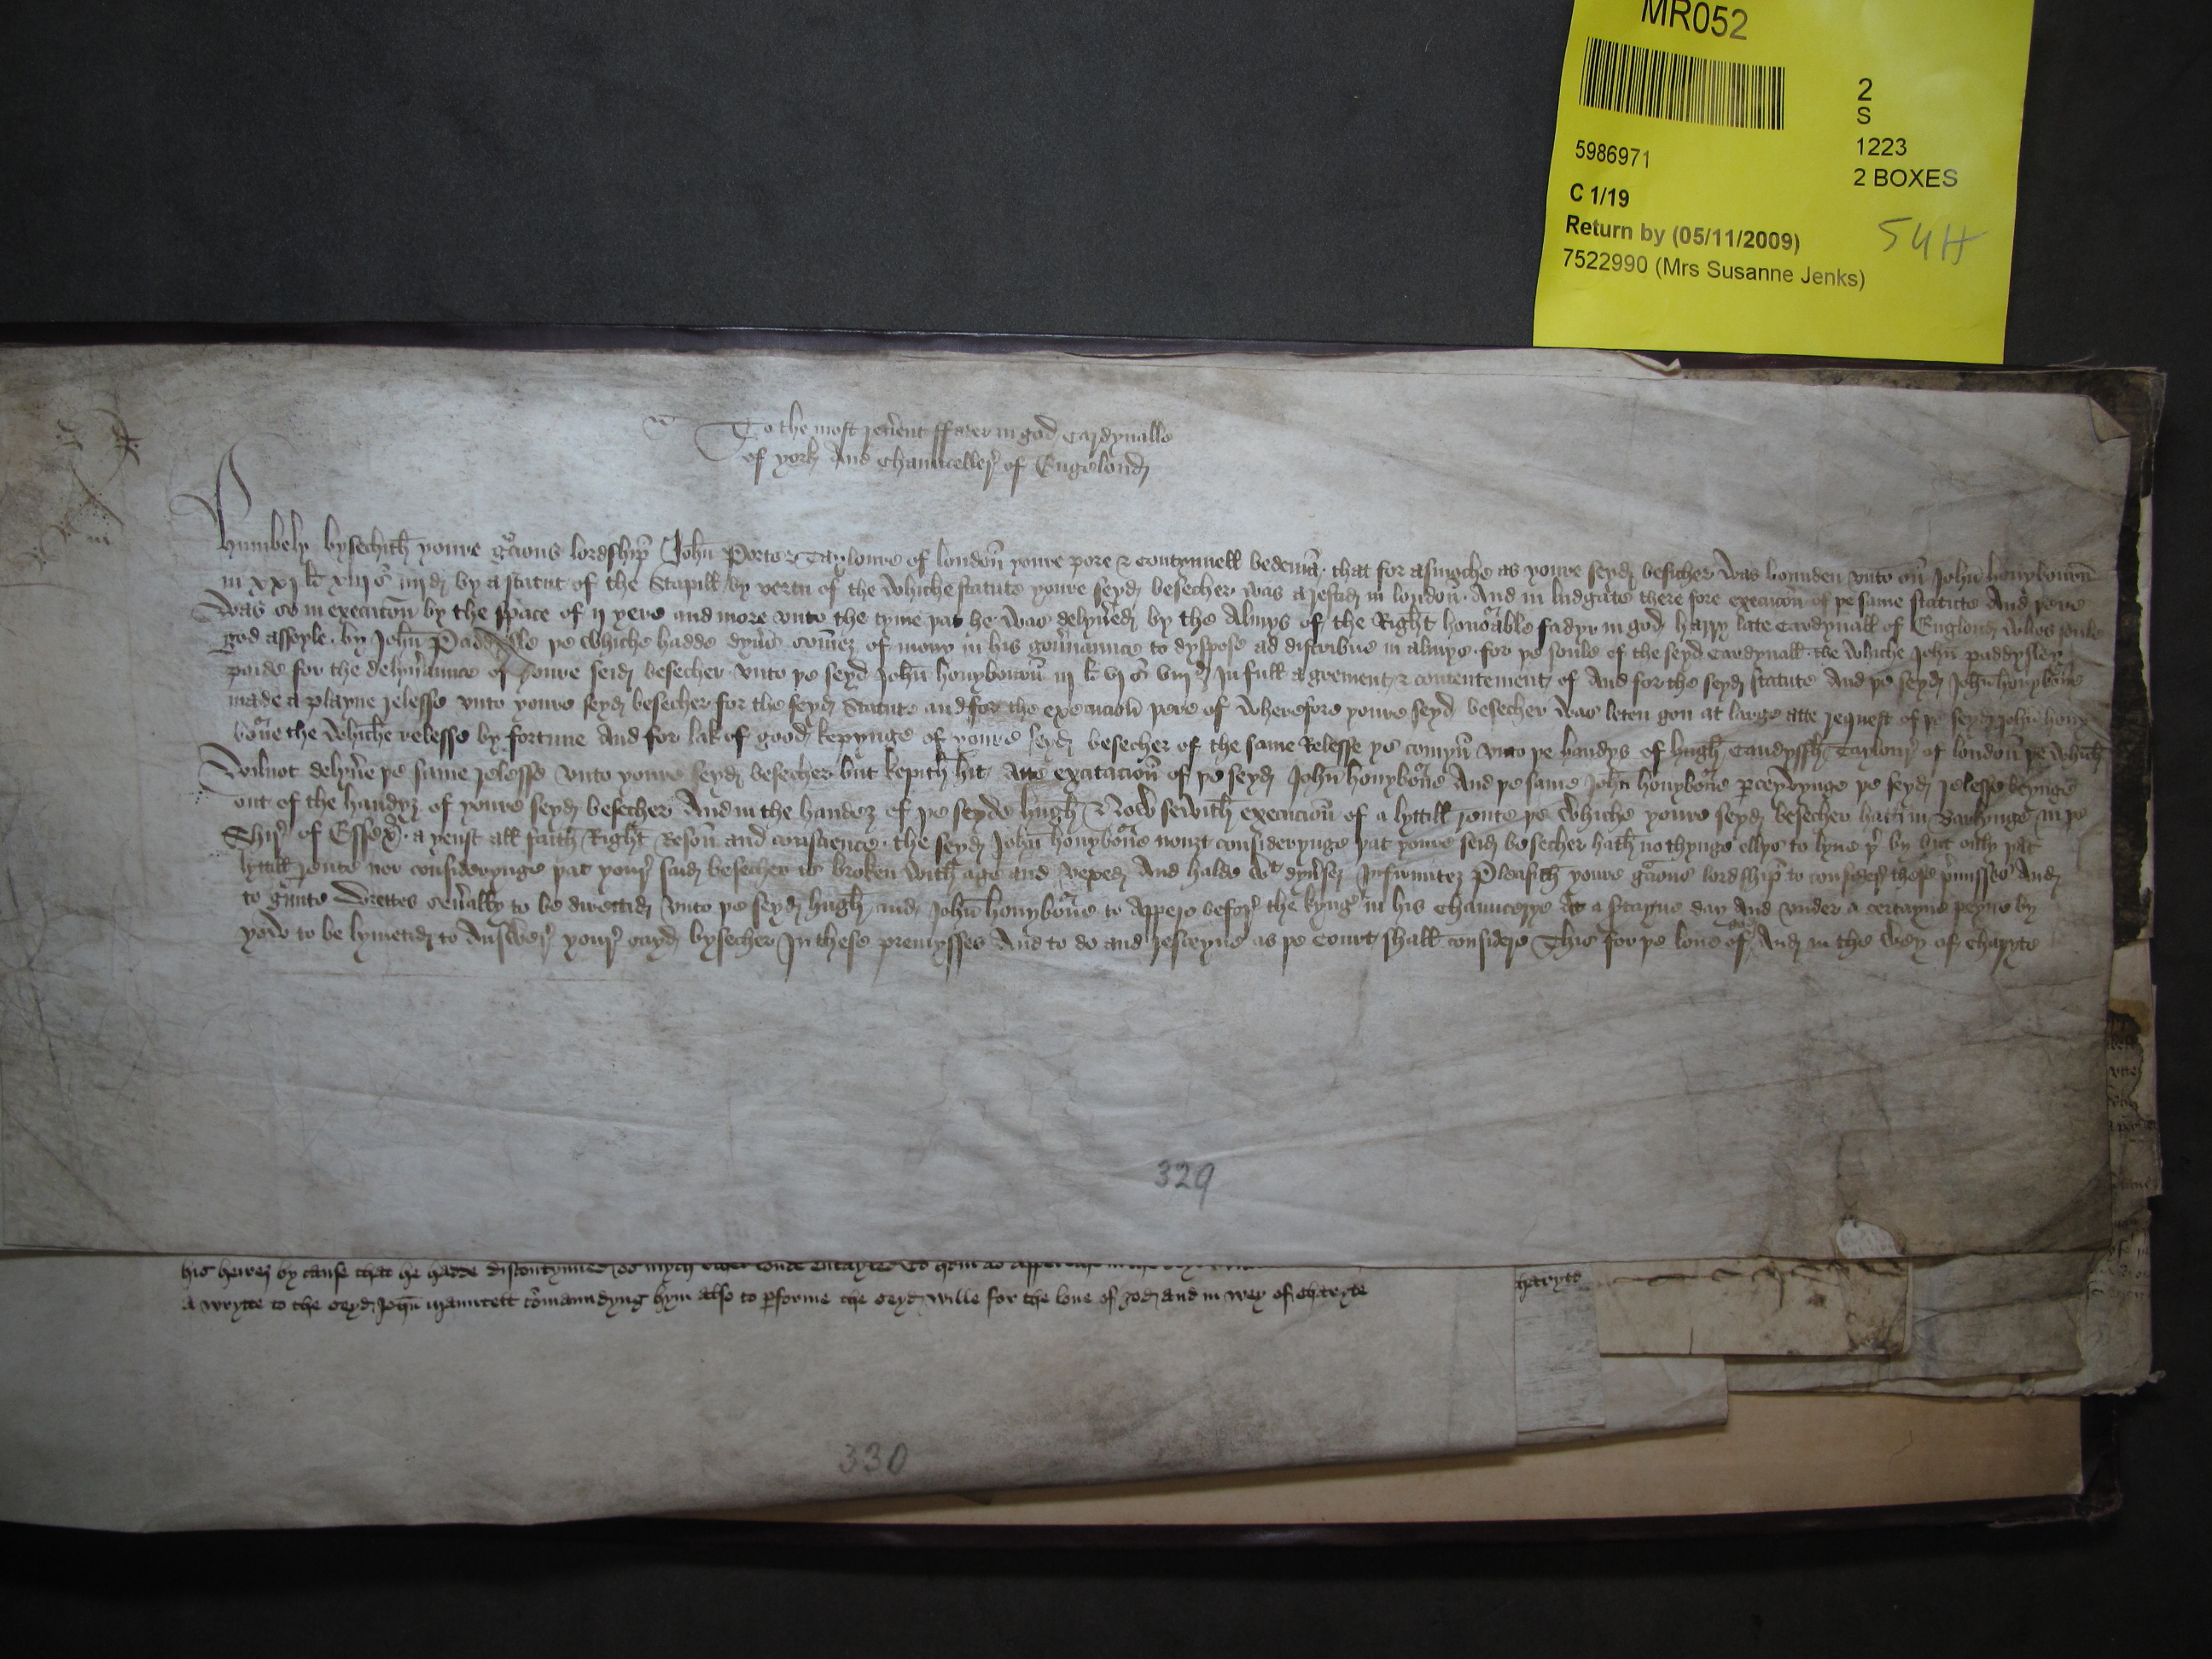 MR052
2
S
5986971
1223
2 BOXES
C 1/19
Return by (05/11/2009)
54H
7522990 (Mrs Susanne Jenks)
To the most reuent ffader in god Cardynalle
of york And Chaunceller of Engelond
Humbely bysechith youre gracious lordship John Porter Tayloure of london youre pore & contynuell bedeman that for asmoche as youre seyd besecher was bounden vnto on John honybourn
in xxj li xiij s iiij d by a statut of the Stapill by vertu of the whiche statute youre seyd besecher was arestid in london And in ludgate there fore execucion of þe same statute And þere
was so in execucion by the space of ij yere and more vnto the tyme þat he was delyuered by the Almys of the Right honorable fadyr in god harry late Cardynall of Englond whos soule
god assoyle by John Paddyslé þe whiche hadde dyuers somez of mony in his gouernaunce to dyspose ad distribue in almys for þe soule of the seyd Cardynall the whiche John paddysley
paide for the delyueraunce of youre seid besecher vnto þe seyd John honybourn iij li vj s viij d In full agrement & contentement of And for the seyd statute And þe seyd John honyborne
made a playne relesse vnto youre seyd besecher for the seyd Statute and for the execucion þere of wherefore youre seyd besecher was leten gon at large atte request of þe seyd John hony
borne the whiche relesse by fortune And for lak of good kepynge of youre seyd besecher of the same Relesse ys comyn vnto þe handys of hugh Caudyssh Taylour of london þe which
wilnot delyuere þe same relesse vnto youre seyd besecher but kepith hit Atte excitacion of þe seyd John honyborne And þe same John honyborne perceyvynge þe seyd relesse beynge
out of the handyz of youre seyd besecher And in the handez of þe seyde hugh Now sewith execucion of a lyttill rente þe whiche youre seyd besecher hath in Barkynge in þe
Shire of Essex a yenst all faith Right Reson and conscience the seyd John honyborne nout consideryng þat youre seid besecher hath no thynge ellys to lyue by but only þat
lyttill rente nor consideryng þat your said besecher is broken with age and And halde wt dyuersez Infirmitez Plesith youre gracious lordship to consider these premisses And
to graunte Writtes seuerally to be directid vnto þe seyd hugh and John honyborne to Appere before the kynge in his Chauncerye At a certayne day And vnder a certayne peyne by
yow to be lymetid to Answere your sayd bysecher In these premysses And to do and resceyue as þe Court shall considere This for þe loue of god And in the wey of charyte
329
his heirez by cause that he hadde discontynued so mych
a wrytte to the seyd John Mauncell comaundyng hym also to performe the seyd wille for the loue of god and in wey of charyte
charyte
330